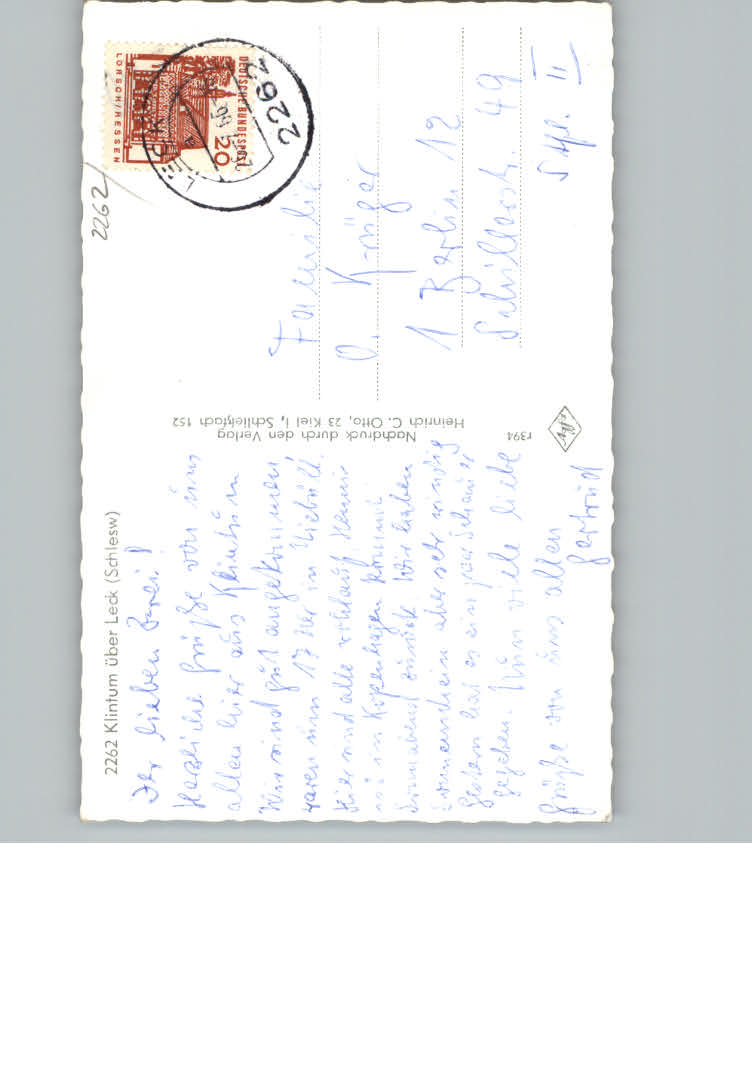 2262 Klintum über Leck (Schlesw)
Ihr lieben Drei!
Herzliche Grüße von uns
allen hier aus Klintum
Wir sind gut angekommen
waren um 17 Uhr in Niebüll.
Hier sind alle wohlauf. Henni
ist in Kopenhagen kommt
Sonnabend zurück. Wir haben
Sonnenschein aber sehr windig
Gestern hat es ein paar Schauer
gegeben. Nun viele liebe
Grüße von uns allen
Gertrud
Nachdruck durch den Verlag
Heinrich C. Otto, 23 Kiel 1, Schließfach 152
r394
2262
DEUTSCHE BUNDESPOST
20
LORSCH/HESSEN
2262
LECK
Familie
O. Krüger
1 Berlin 12
Schillerstr. 49
Stfl. II